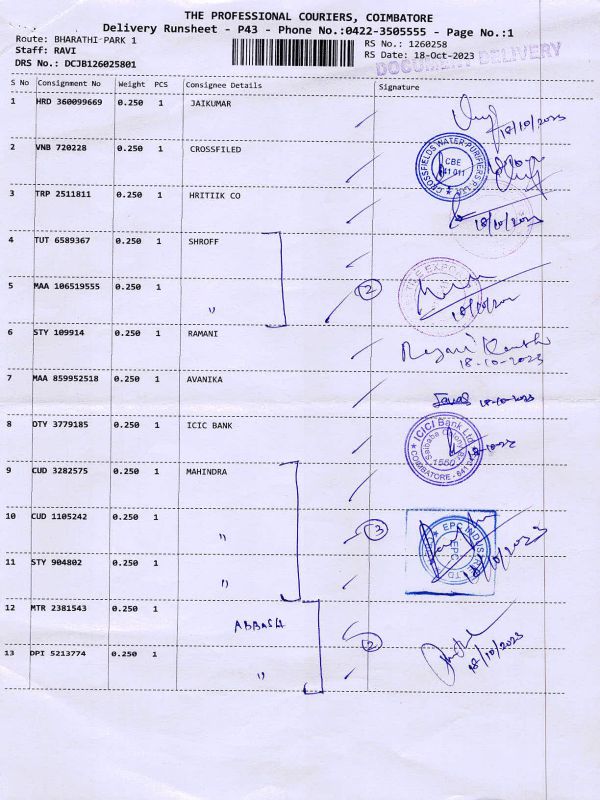 THE PROFESSIONAL COURIERS, COIMBATORE
Delivery Runsheet - P43 - Phone No.:0422-3505555 - Page No.:1
Route: BHARATHI-PARK 1
RS No.: 1260258
Staff: RAVI
RS Date: 18-Oct-2023
DRS No.: DCJB126025801
DOCUMENT DELIVERY
S No Consignment No Weight PCS Consignee Details Signature
1 HRD 360099669 0.250 1 JAIKUMAR
18/10/2023
2 VNB 720228 0.250 1 CROSSFILED
CROSSFIELDS WATER PURIFIERS
CBE
641 011
3 TRP 2511811 0.250 1 HRITIIK CO
18/10/2023
4 TUT 6589367 0.250 1 SHROFF
5 MAA 106519555 0.250 1 " 2
6 STY 109914 0.250 1 RAMANI
18-10-2023
7 MAA 859952518 0.250 1 AVANIKA
18-10-2023
8 DTY 3779185 0.250 1 ICIC BANK
ICICI Bank Ltd.
Saibaba Colony
1560
COIMBATORE - 641
9 CUD 3282575 0.250 1 MAHINDRA
10 CUD 1105242 0.250 1 " 3
EPC INDUSTRIE LTD
EPC
18/10/2023
11 STY 904802 0.250 1 "
12 MTR 2381543 0.250 1 ABBASH
2
18/10/2023
13 DPI 5213774 0.250 1 "